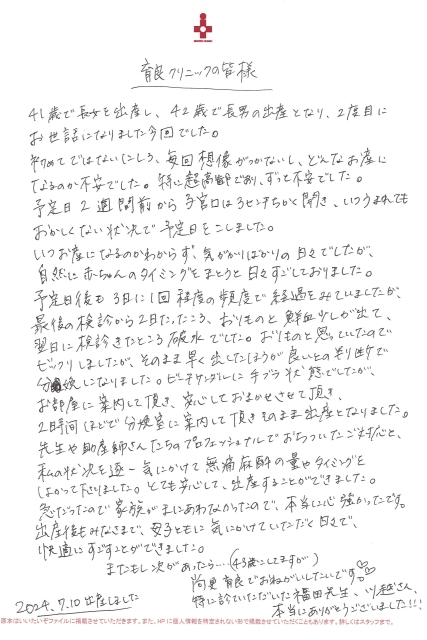 育良クリニックの皆様
41歳で長女を出産し、42歳で長男の出産となり、2度目に
お世話になりました今回でした。
初めてではないにしろ、毎回想像がつかないし、どんなお産に
なるのか不安でした。特に超高齢であり、ずっと不安でした。
予定日2週間前から子宮口は3センチちかく開き、いつうまれても
おかしくない状況で予定日をこしました。
いつお産になるのかわからず、気がかりばかりの日々でしたが、
自然に赤ちゃんのタイミングをまとうと日々すごしておりました。
予定日後も3日に1回程度の頻度で経過をみていましたが、
最後の検診から2日たったころ、おりものと鮮血少しが出て、
翌日に検診きたところ破水でした。おりものと思っていたので
ビックリしましたが、そのまま早く出したほうが良いとの判断で
分娩になりました。 手ブラ状態でしたが、
お部屋に案内して頂き、安心しておまかせさせて頂き、
2時間ほどで分娩室に案内して頂きそのまま出産となりました。
先生や助産師さんたちのプロフェッショナルでおちついたご対応と、
私の状況を逐一気にかけて無痛麻酔の量やタイミングを
はかって下さりました。とても安心して、出産することができました。
急だったので家族がまにあわなかったので、本当に心強かったです。
出産後もみなさまで、母子ともに気にかけていただく日々で、
快適にすごすことができました。
またもし次があったら…(43歳にしてますが)
尚更育良でおねがいしたいです。
2024.7.10 出産しました
特に診ていただいた福田先生、川越さん、
本当にありがとうございました!!!
原本はいいたいぞファイルに掲載させていただきます。また、HPに個人情報を特定されない形で掲載させていただくこともあります。詳しくはスタッフまで。